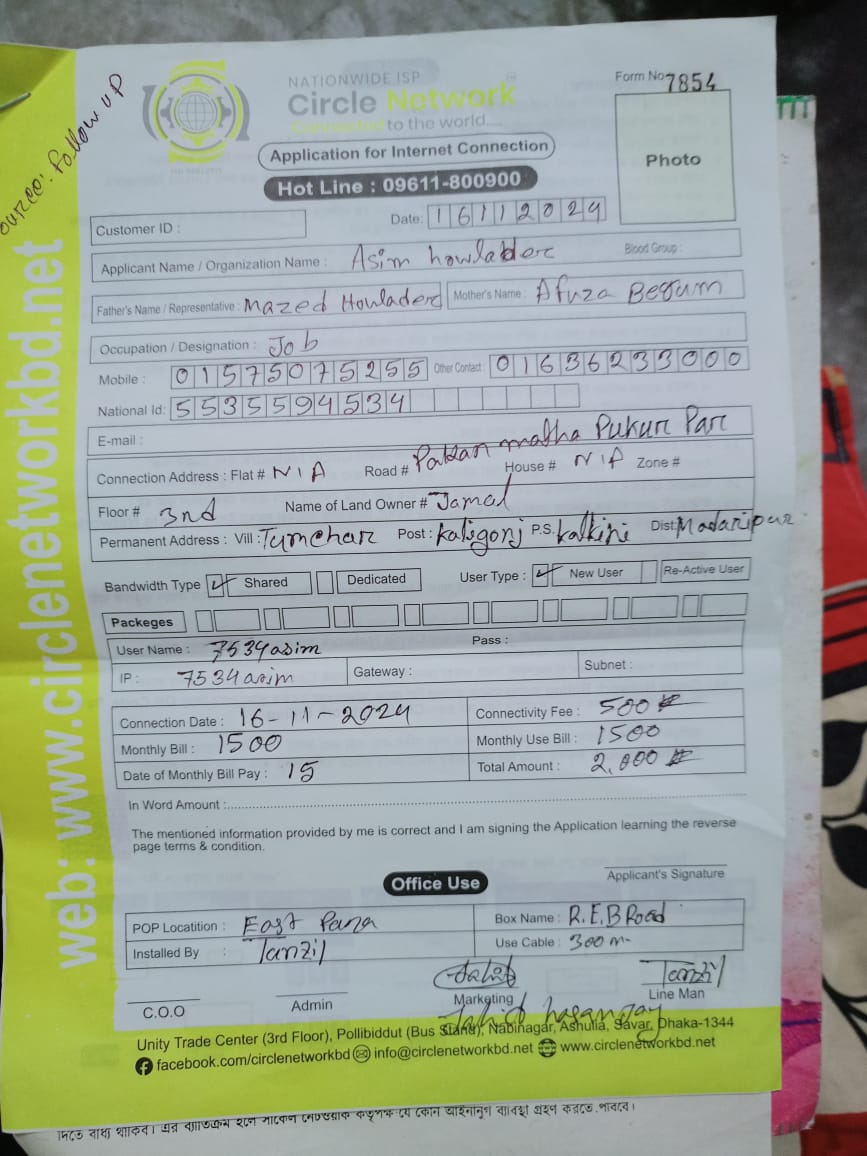 Source: Follow up
NATIONWIDE ISP
Circle Network
Connected to the world....
Form No 7854
Application for Internet Connection
Photo
Hot Line : 09611-800900
Date: 16112024
Customer ID :
Applicant Name / Organization Name : Asim howlader Blood Group :
Father's Name / Representative : Mazed Howlader Mother's Name : Afuza Begum
Occupation / Designation : Job
Mobile : 01575075255 Other Contact : 01636233000
National Id: 5535594534
E-mail :
Connection Address : Flat # N/A Road # Pakan matha Pukur Par House # N/A Zone #
Floor # 3nd Name of Land Owner # Jamal
Permanent Address : Vill : Tumchar Post : Kaligonj P.S. Kalkini Dist: Madaripur
Bandwidth Type Shared Dedicated User Type : New User Re-Active User
Packeges
User Name : 7534asim Pass :
IP : 7534asim Gateway : Subnet :
Connection Date : 16-11-2024 Connectivity Fee : 500
Monthly Bill : 1500 Monthly Use Bill : 1500
Date of Monthly Bill Pay : 15 Total Amount : 2,000
In Word Amount :
The mentioned information provided by me is correct and I am signing the Application learning the reverse
page terms & condition.
Applicant's Signature
Office Use
POP Locatition : East Para Box Name : R.E.B Road
Installed By : Tanzil Use Cable : 300 m
Tanzil
C.O.O Admin Marketing Line Man
Unity Trade Center (3rd Floor), Pollibiddut (Bus Stand), Nabinagar, Ashulia, Savar, Dhaka-1344
facebook.com/circlenetworkbd info@circlenetworkbd.net www.circlenetworkbd.net
web: www.circlenetworkbd.net
দিতে বাধ্য থাকিব। এর ব্যতিক্রম হলে সার্কেল নেটওয়ার্ক কতৃপক্ষ যে কোন আইনানুগ ব্যবস্থা গ্রহণ করতে পারবে।